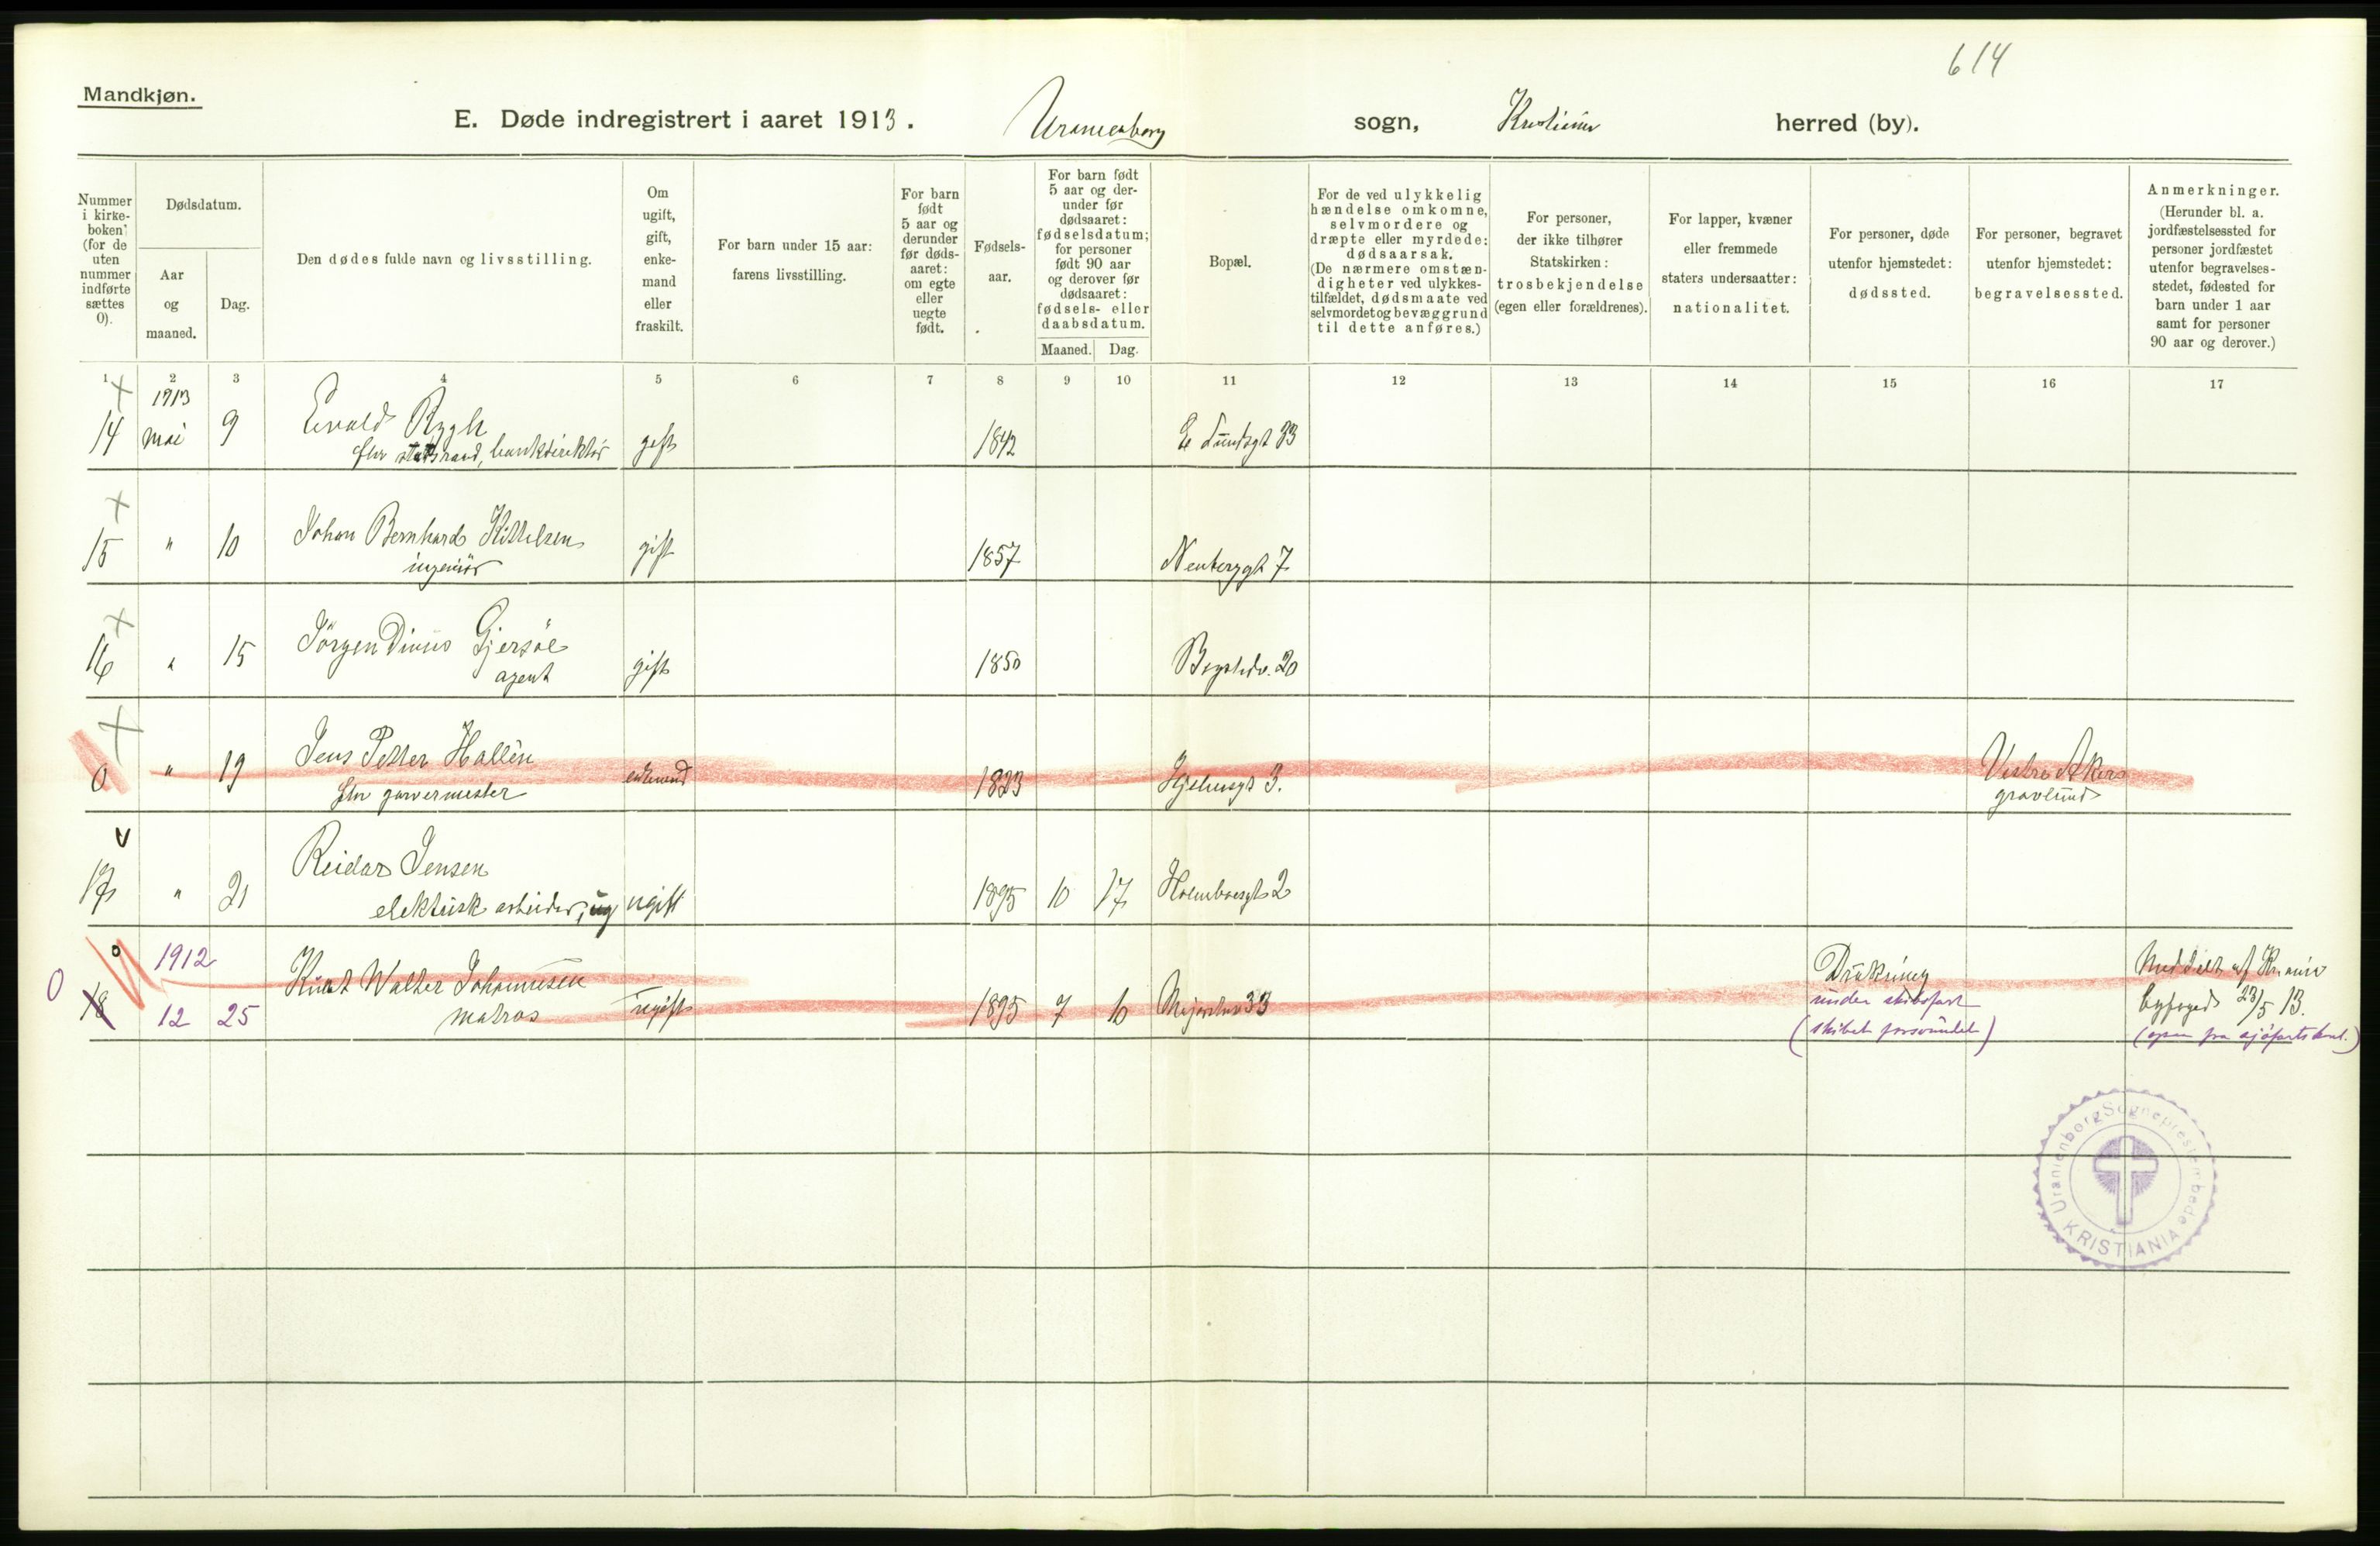 614
Mandkjøn.
E. Døde indregistrert i aaret 1913. Uranienborg sogn, Kristiania herred (by).
Nummer i kirkeboken (for de uten nummer indførte sættes 0).
Dødsdatum.
Aar og maaned.
Dag.
Den dødes fulde navn og livsstilling.
Om ugift, gift, enkemand eller fraskilt.
For barn under 15 aar: farens livsstilling.
For barn født 5 aar og derunder før dødsaaret: om egte eller uegte født.
Fødselsaar.
For barn født 5 aar og derunder før dødsaaret: fødselsdatum; for personer født 90 aar og derover før dødsaaret: fødsels- eller daabsdatum.
Maaned. Dag.
Bopæl.
For de ved ulykkelig hændelse omkomne, selvmordere og dræpte eller myrdede: dødsaarsak. (De nærmere omstændigheter ved ulykkestilfældet, dødsmaate ved selvmordet og bevæggrund til dette anføres.)
For personer, der ikke tilhører Statskirken: trosbekjendelse (egen eller forældrenes).
For lapper, kvæner eller fremmede staters undersaatter: nationalitet.
For personer, døde utenfor hjemstedet: dødssted.
For personer, begravet utenfor hjemstedet: begravelsessted.
Anmerkninger. (Herunder bl. a. jordfæstelsessted for personer jordfæstet utenfor begravelsesstedet, fødested for barn under 1 aar samt for personer 90 aar og derover.)
1 2 3 4 5 6 7 8 9 10 11 12 13 14 15 16 17
1913
14 mai 9 Evald Rygh gift 1842 E Sundsgt 33
fhv statsraad, bankdirektör
15 " 10 Johan Bernhard Kittelsen gift 1857 Neuberggt 7
ingeniör
16 " 15 Jörgen Dinus Gjersöe gift 1850 Bogstadv. 20
agent
0 " 19 Jens Petter Hallén enkemand 1823 Hjelmsgt 3. Vestre Aker
fhv garvermester gravlund
17 " 21 Reidar Jensen
elektrisk arbeider, ug ugift 1895 10 17 Holmboesgt 2
1912
0 18 12 25 Knut Walter Johannesen ugift 1895 7 10 Majorstuv 33
matros
Drukning
under skibsfart
(skibet forsvundet)
Meddelt af Kr.ania
byfoged 23/5 13.
(opm fra sjöfartskont.)
Uranienborg Sogneprestembede
KRISTIANIA